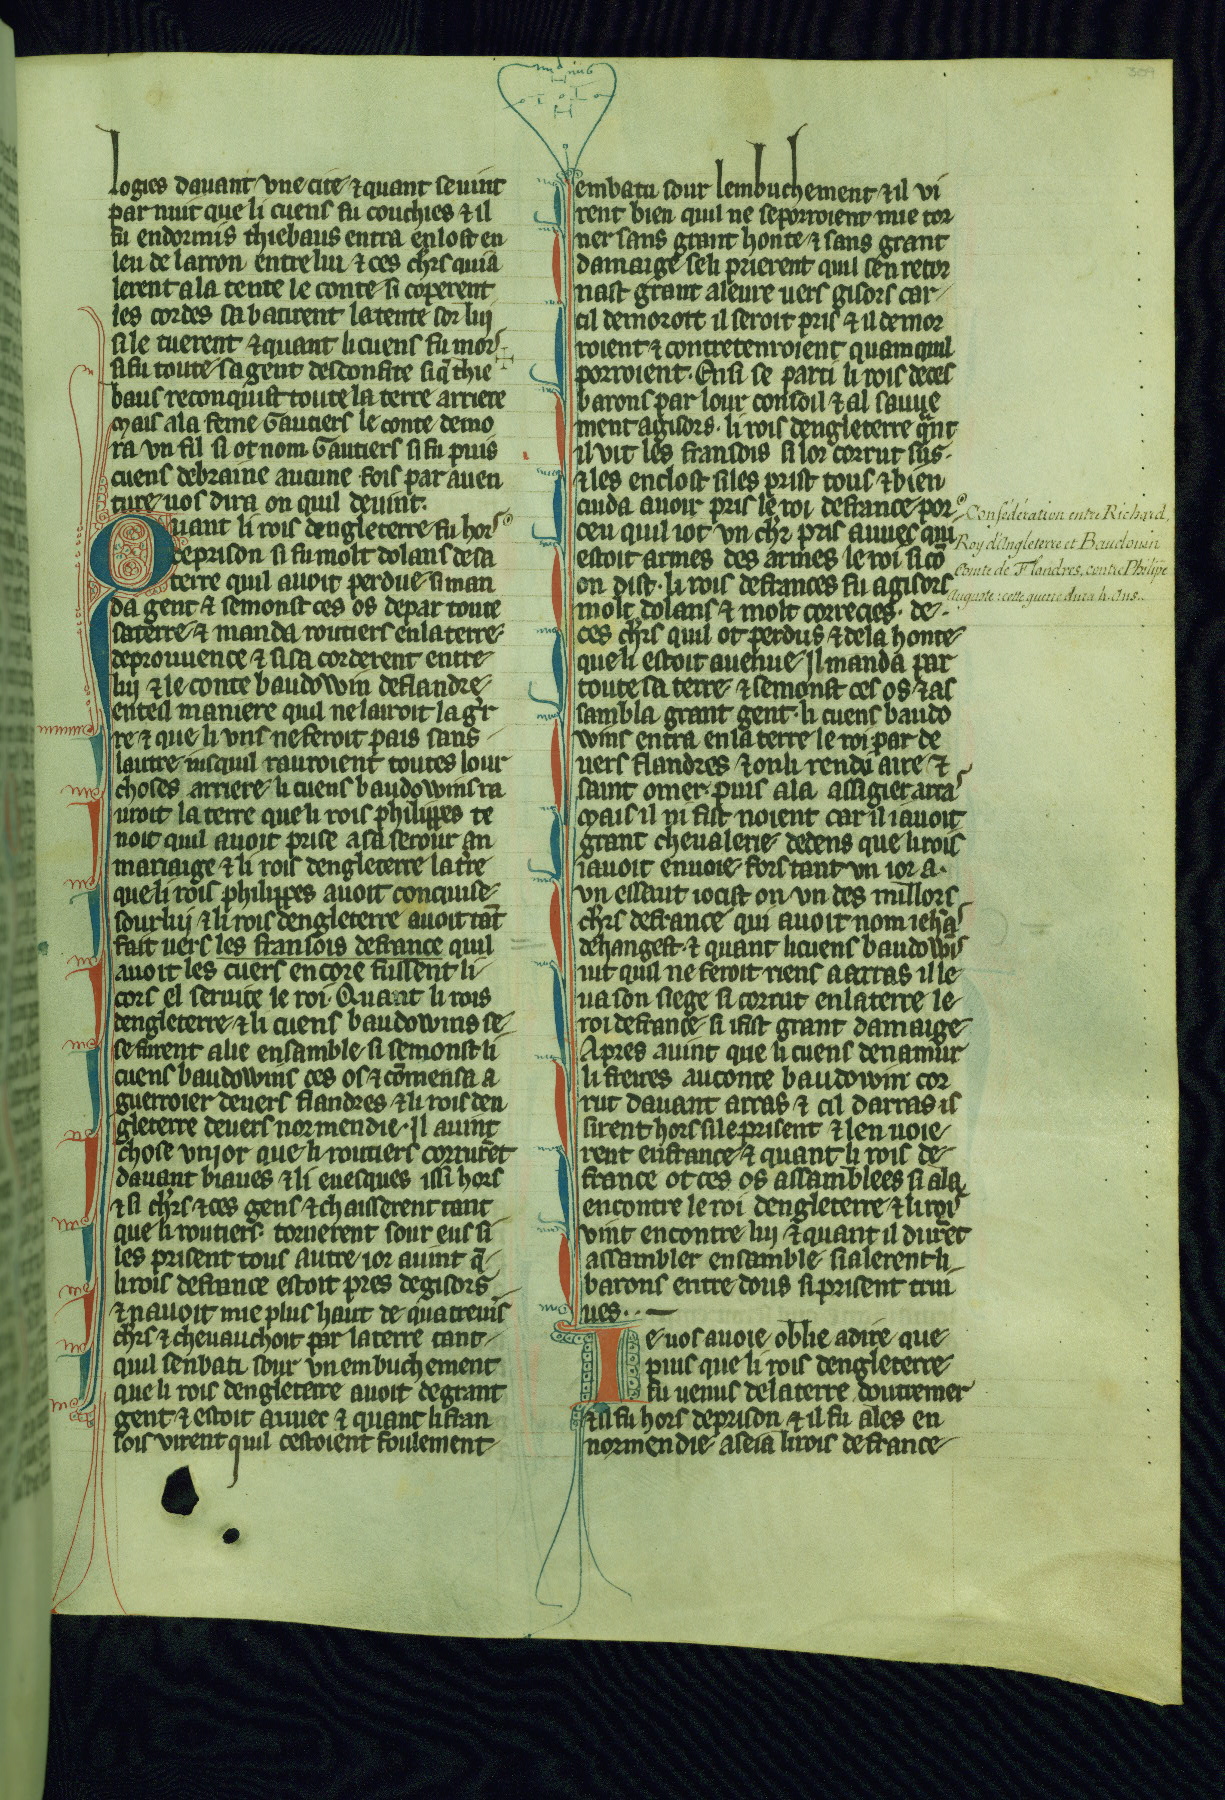 logies davant vne cite ⁊ quant se vint
par nuit que li cuens fu couchies ⁊ il
fu endormis thiebaus entra en lost en
leu de larron entre lui ⁊ ces chr̄s qui a
lerent a la tente le conte si coperent
les cordes sabatirent la tente sor lui
si le tuerent ⁊ quant li cuens fu mors
si fu toute sa gent desconfite si q̄ thie
baus reconquist toute la terre arriere
Mais a la feme Gautiers le conte demo
ra vn fil si ot nom Gautiers si fu puis
cuens de braine aucune fois par auen
ture uos dira on quil deuint.
Quant li rois dengleterre fu hors
de prison si fu molt dolans de sa
terre quil auoit perdue si man
da gent ⁊ semonst ces os de par toute
sa terre ⁊ manda routiers en la terre
de prouuence ⁊ si sa corderent entre
lui ⁊ le conte baudowin de flandre
en teil maniere quil ne lairoit la g̾r
re ⁊ que li vns ne feroit pais sans
lautre iusquil rauroient toutes lour
choses arriere li cuens baudowins ra
uroit la terre que li rois philippes te
noit quil auoit prise a sa serour an
mariaige ⁊ li rois dengleterre la t̾re
que li rois philippes auoit conquise
sour lui ⁊ li rois dengleterre auoit tāt
fait uers les fransois de france quil
auoit les cuers encore fussent li
cors el seruice le roi. Quant li rois
dengleterre ⁊ li cuens baudowins se
se furent alie ensamble si semonst li
cuens baudowins ces os ⁊ cōmensa a
guerroier deuers flandres ⁊ li rois den
gleterre deuers normendie. Il auint
chose vn ior que li routiers corrurēt
dauant biaues ⁊ li euesques issi hors
⁊ si chr̄s ⁊ ces gens ⁊ chaisserent tant
que li routiers. tornerent sour eus si
les prisent tous autre ior auint q̄
li rois de france estoit pres de gisors
⁊ nauoit mie plus haut de quatreuīs
chr̄s ⁊ cheuauchoit par la terre tant
quil senbati sour vn embuchement
que li rois dengleterre auoit de grant
gent ⁊ estoit auuec ⁊ quant li fran
sois virent quil cestoient foulement
embatu sour lembuchement ⁊ il vi
rent bien quil ne se porroient mie tor
ner sans grant honte ⁊ sans grant
damaige se li prierent quil sen retor
nast grant aleure uers gisors car
cil demoroit il seroit pris ⁊ il demor
roient ⁊ contretenroient quamquil
porroient. Ensi se parti li rois de ces
barons par lour consoil ⁊ al sauue
ment a gisors. li rois dengleterre q̄nt
il vit les fransois si lor corrut sus.
⁊ les enclost si les prist tous ⁊ bien
cuida auoir pris le roi de france por
ceu quil i ot vn chr̄ pris auuec qui
estoit armes des armes le roi si cō
on dist. li rois de frances fu a gisors
molt dolans ⁊ molt correcies. de
ces chr̄s quil ot perdus ⁊ de la honte
que li estoit auenue Il manda par
toute sa terre ⁊ semonst ces os ⁊ as
sambla grant gent. li cuens baudo
wins entra en la terre le roi par de
uers flandres ⁊ on li rendi aire ⁊
saint omer. puis ala assigier arras
Mais il ni fist noient car il i auoit
grant cheualerie dedens que li rois
i auoit enuoie fors tant vn ior a.
vn essaut i ocist on vn des millors
chr̄s de france qui auoit nom iehā
de hangest. ⁊ quant li cuens baudowīs
uit quil ne feroit riens a arras il le
ua son siege si corrut en la terre le
roi de france si i fist grant damaige
Apres auint que li cuens de namur
li freires au conte baudowin cor
rut dauant arras ⁊ cil darras is
sirent hors si le prisent ⁊ len uoie
rent en france ⁊ quant li rois de
france ot ces os assamblees si ala
encontre le roi dengleterre ⁊ li roi
vint encontre lui ⁊ quant il durēt
assambler ensamble si alerent li
barons entre dous si prisent trui
ues..
Ie uos auoie oblie a dire que
puis que li rois dengleterre
fu uenus de la terre doutremer
⁊ il fu hors de prison ⁊ il fu ales en
normendie aseia li rois de france
Confédération entre Richard,
Roy d'Angleterre et Baudouin
Comte de Flandres, contre Philipe
Auguste: cette guerre dura 4. Ans.
309